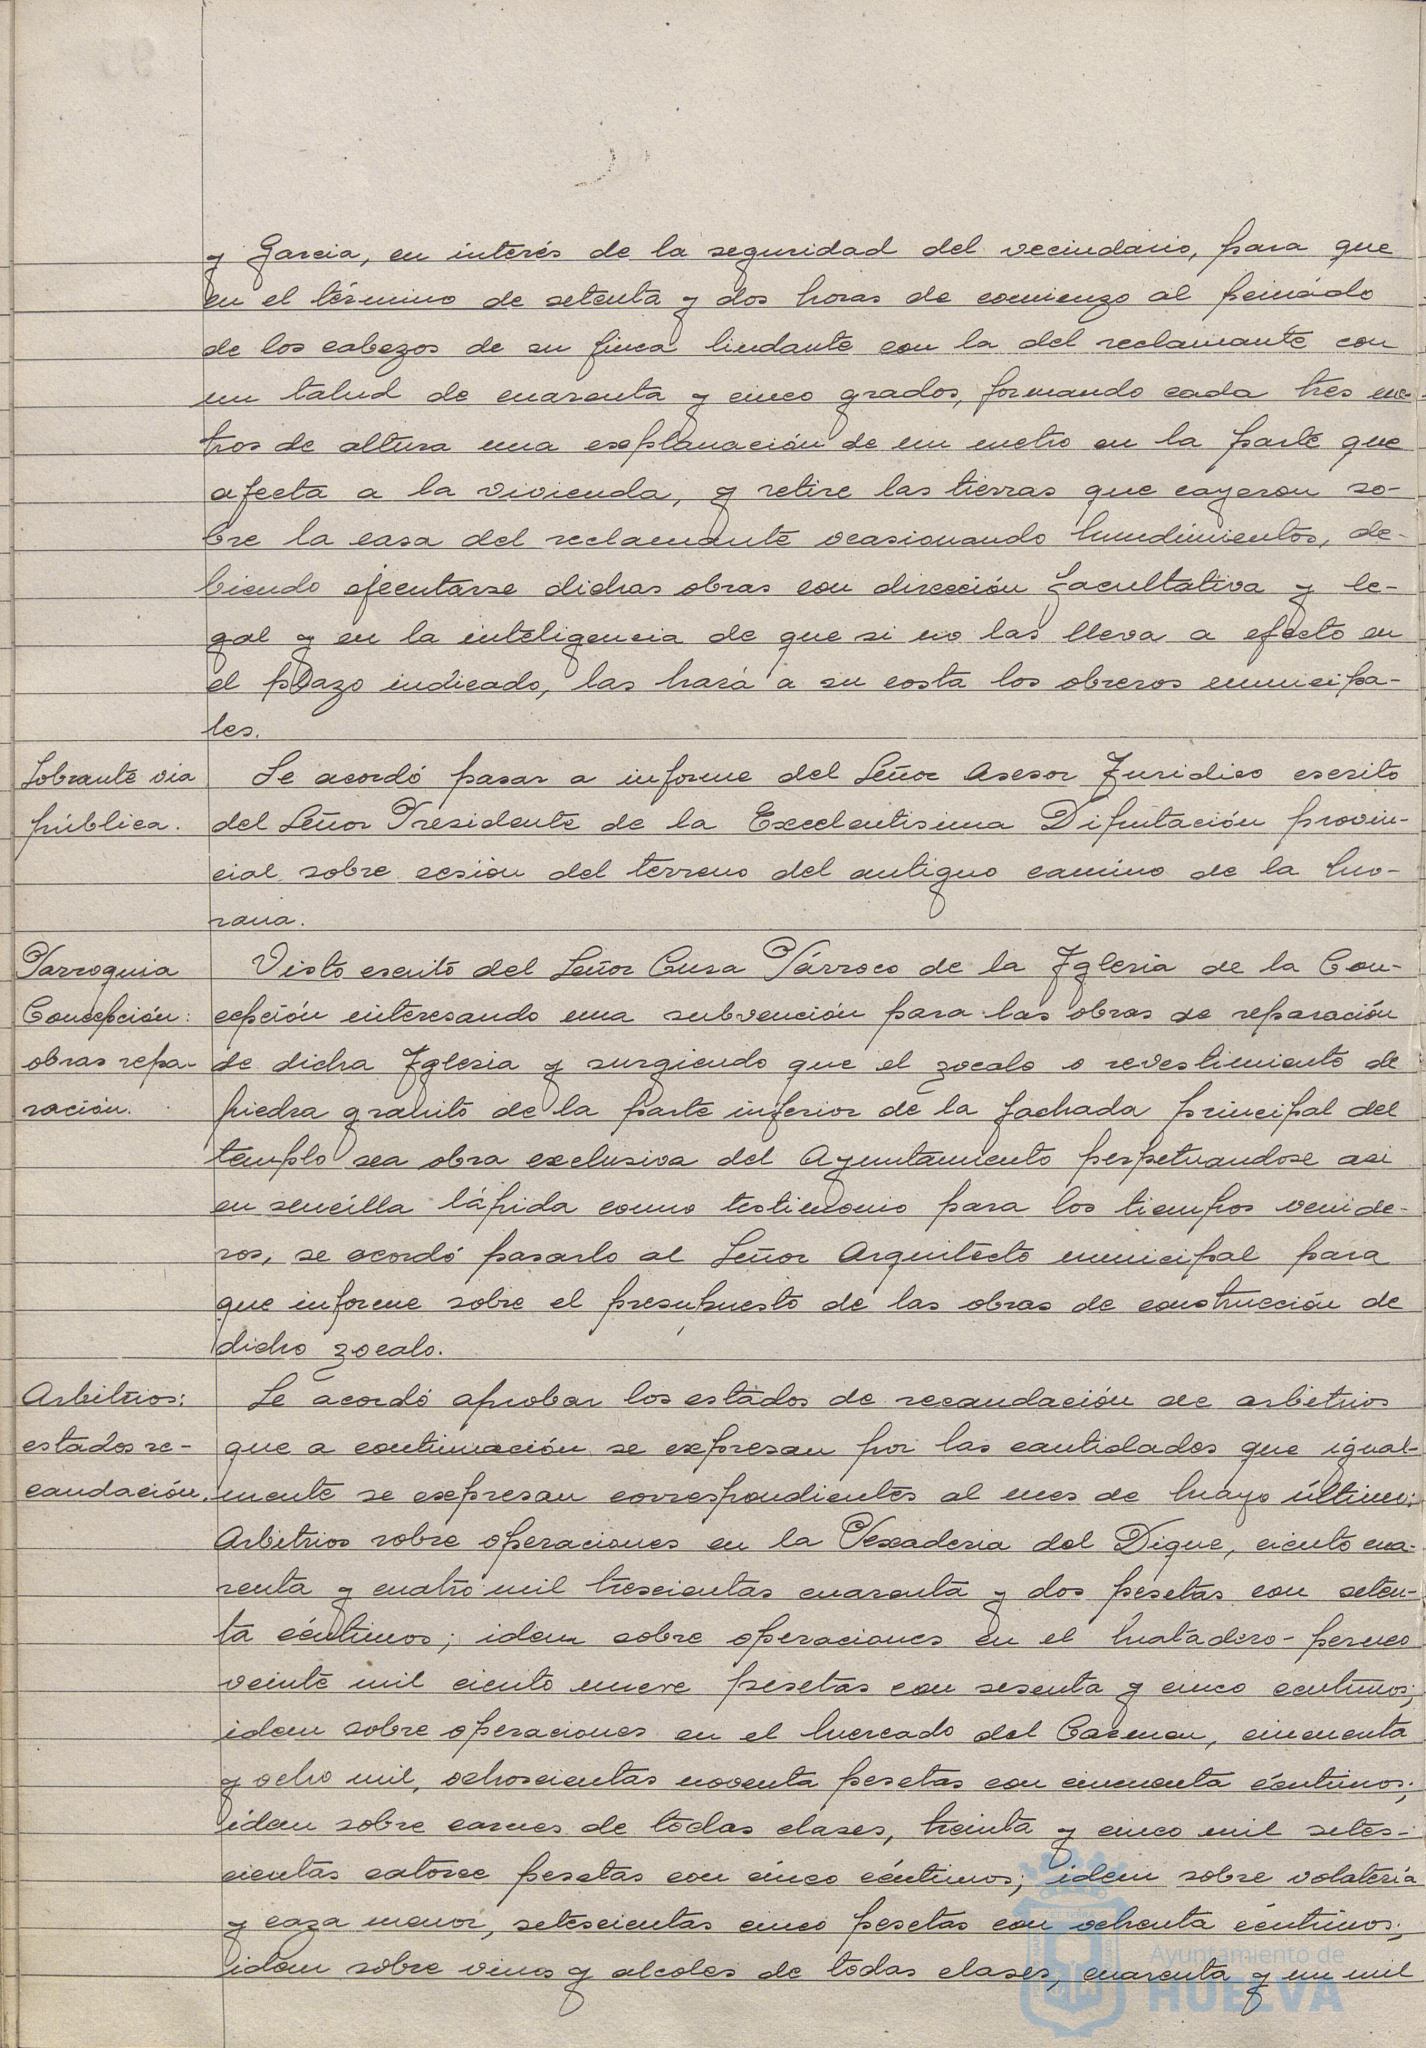 y Garcia, en interés de la seguridad del vecindario, para que
en el término de setenta y dos horas de comienzo al peinado
de los cabezos de su finca lindante con la del reclamante con
un talud de cuarenta y cinco grados, formando cada tres me-
tros de altura una explanación de un metro en la parte que
afecta a la vivienda, y retire las tierras que cayeron so-
bre la casa del reclamante ocasionando hundimientos, de-
biendo ejecutarse dichas obras con dirección facultativa y le-
gal y en la inteligencia de que si no las lleva a efecto en
el plazo indicado, las hará a su costa los obreros municipa-
les.
Sobrante via
pública.
Se acordó pasar a informe del Señor Asesor Juridico escrito
del Señor Presidente de la Excelentisima Diputación provin-
cial sobre cesión del terreno del antiguo camino de la Mo-
rana.
Parroquia
Concepción:
obras repa-
ración.
Visto escrito del Señor Cura Párroco de la Iglesia de la Con-
cepción interesando una subvención para las obras de reparación
de dicha Iglesia y surgiendo que el zocalo o revestimiento de
piedra granito de la parte inferior de la fachada principal del
templo sea obra exclusiva del Ayuntamiento perpetuandose asi
en sencilla lápida como testimonio para los tiempos venide-
ros, se acordó pasarlo al Señor Arquitecto municipal para
que informe sobre el presupuesto de las obras de construcción de
dicho zocalo.
Arbitrios:
estados re-
caudación.
Se acordó aprobar los estados de recaudación de arbitrios
que a continuación se expresan por las cantidades que igual-
mente se expresan correspondientes al mes de Mayo último:
Arbitrios sobre operaciones en la Pescaderia del Dique, ciento cua-
renta y cuatro mil trescientas cuarenta y dos pesetas con seten-
ta céntimos; idem sobre operaciones en el Matadero-perneo
veinte mil ciento nueve pesetas con sesenta y cinco centimos;
idem sobre operaciones en el Mercado del Carmen, cincuenta
y ocho mil, ochoscientas noventa pesetas con cincuenta céntimos;
idem sobre carnes de todas clases, treinta y cinco mil setes-
cientas catorce pesetas con cinco céntimos; idem sobre volateria
y caza menor, setescientas cinco pesetas con ochenta céntimos;
idem sobre vinos y alcoles de todas clases, cuarenta y un mil
Ayuntamiento de
HUELVA